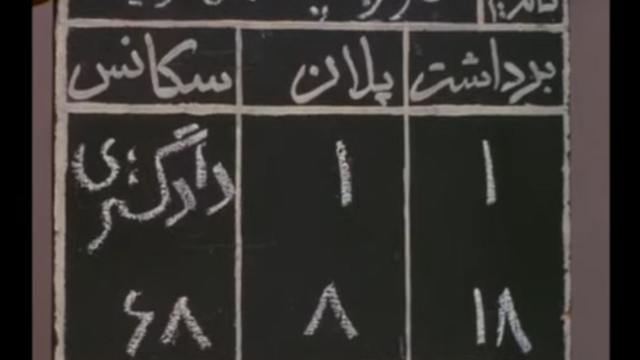 برداشت پلان سکانس
۱ ۱ دادگستری
۱۸ ۸ ۶۸